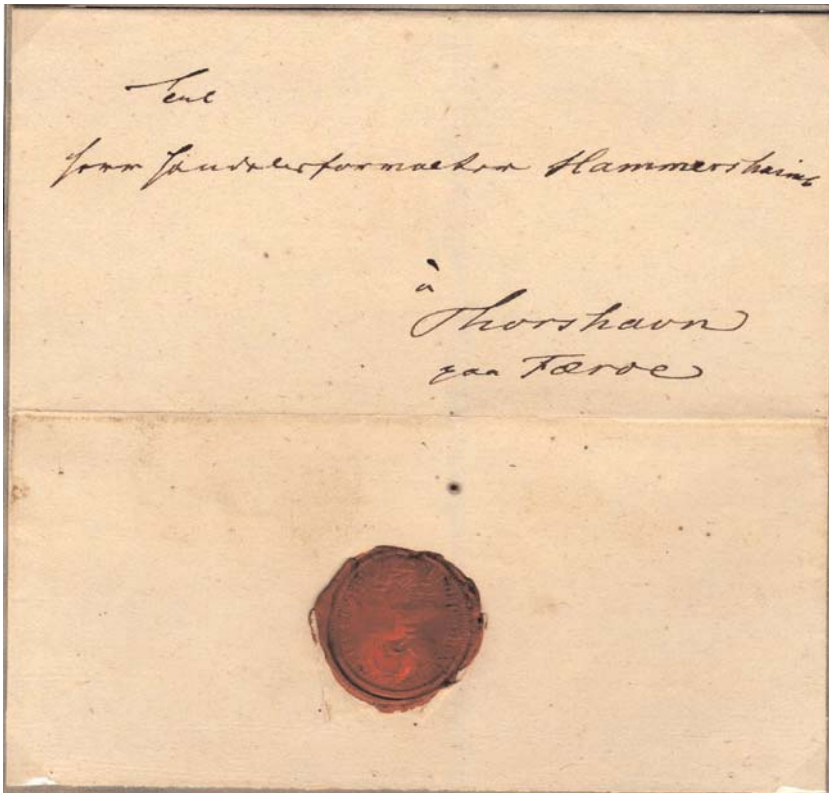 Til
Herr Handelsforvalter Hammershaimb
à
Thorshavn
paa Færöe